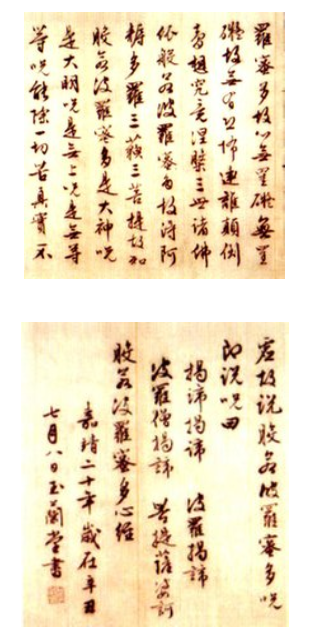 羅蜜多故心無罣礙無罣
礙故無有恐怖遠離顛倒
夢想究竟涅槃三世諸佛
依般若波羅蜜多故得阿
耨多羅三藐三菩提故知
般若波羅蜜多是大神咒
是大明咒是無上咒是無等
等咒能除一切苦真實不
虛故說般若波羅蜜多咒
即說咒曰
揭諦揭諦 波羅揭諦
波羅僧揭諦 菩提薩婆訶
般若波羅蜜多心經
嘉靖二十年歲在辛丑
七月八日玉蘭堂書